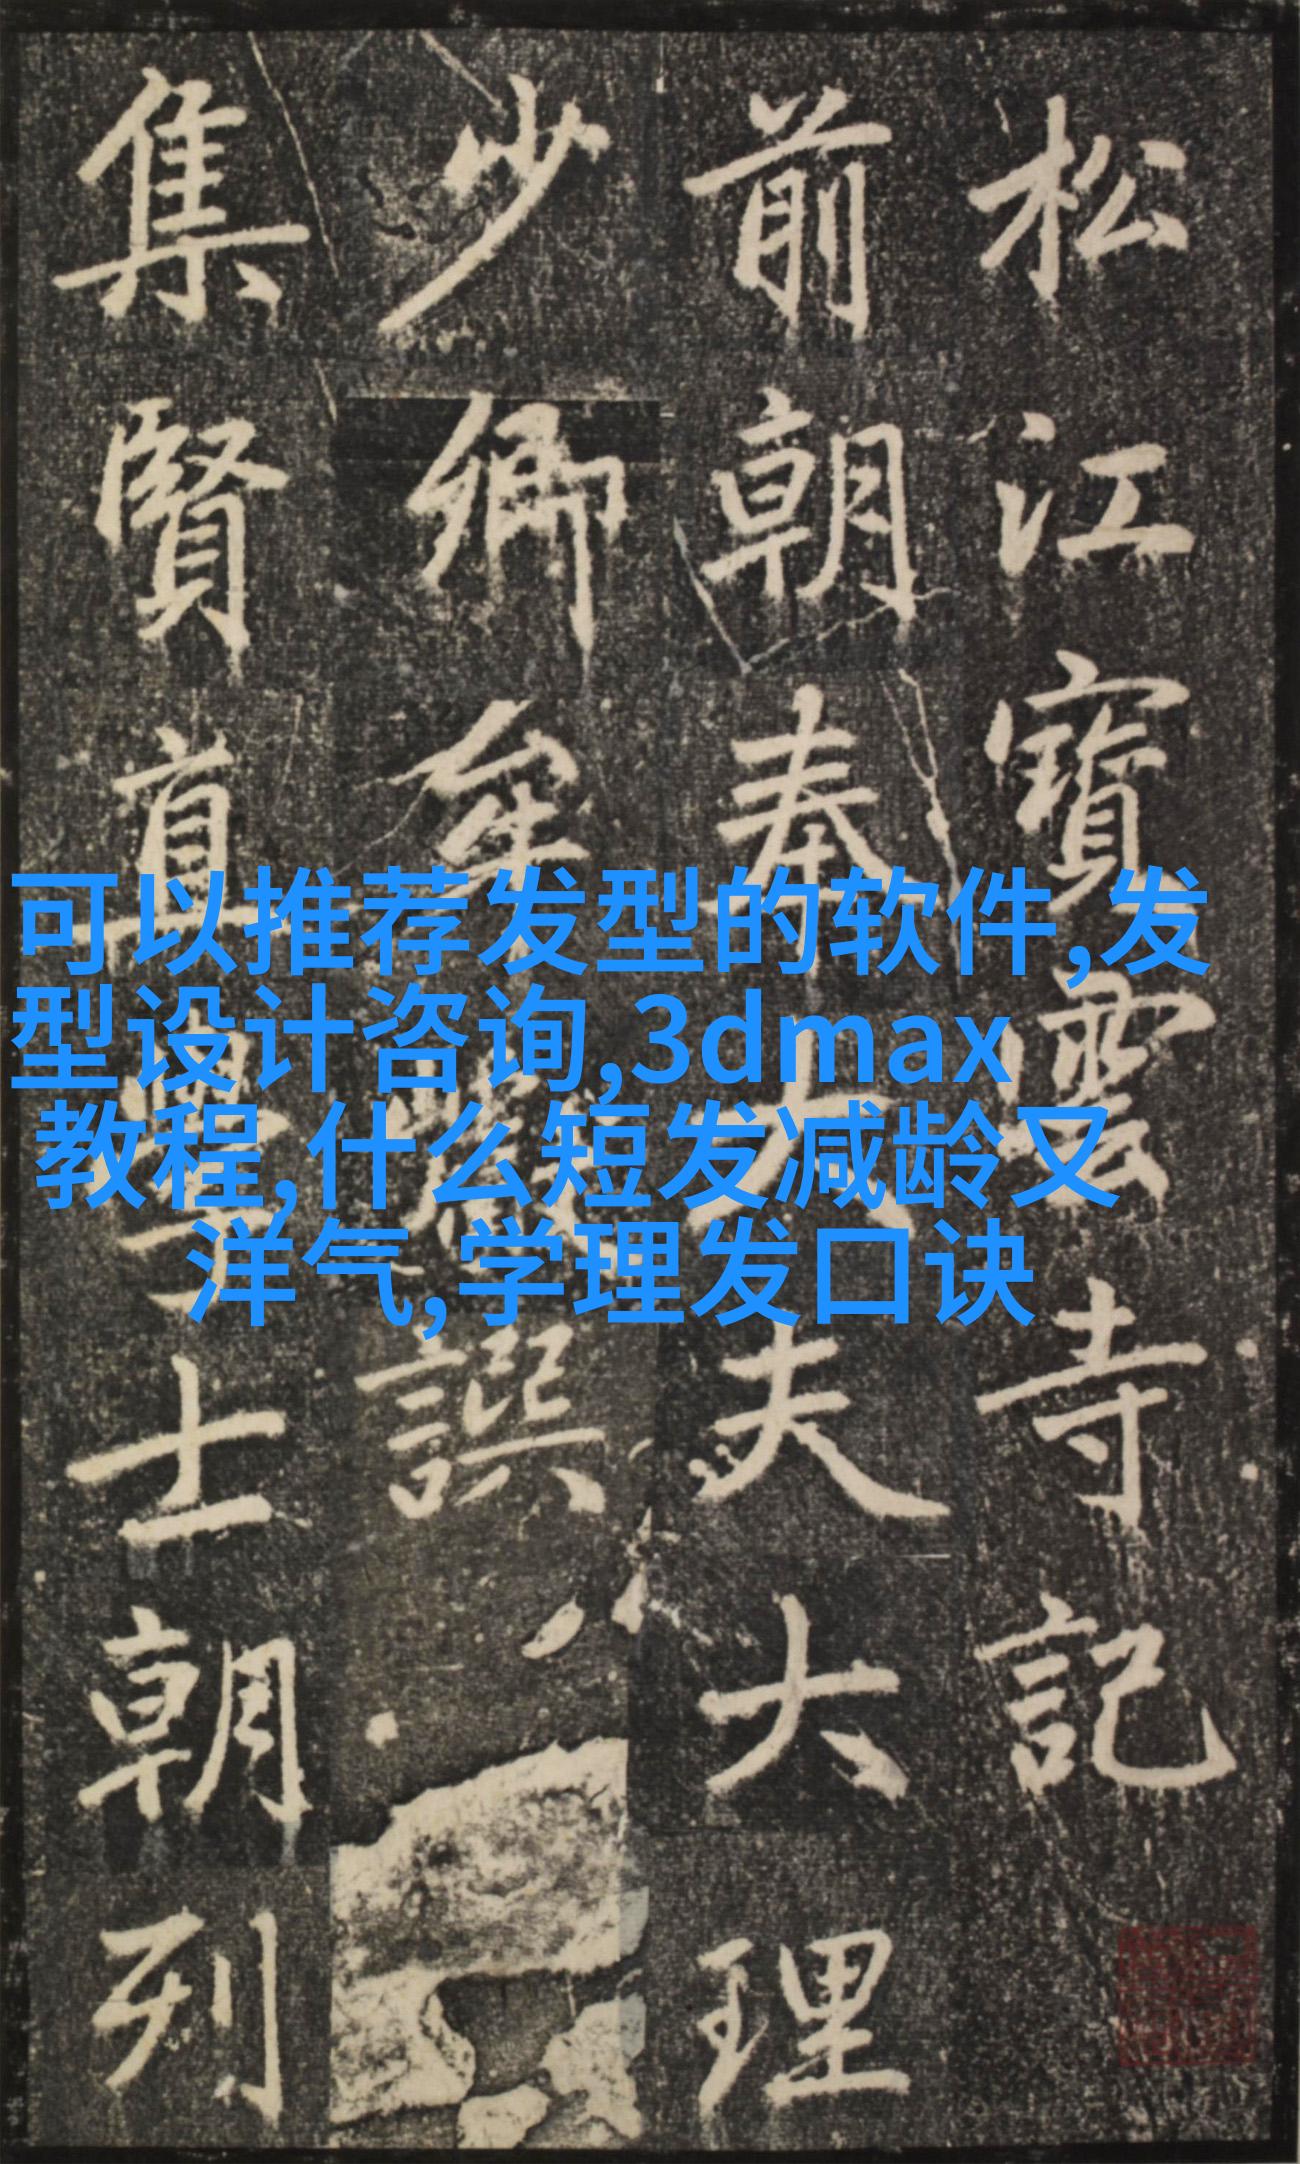 松江寶雲寺記
前朝奉大夫大理
少卿牟巘譔
集賢直學士朝列
可以推荐发型的软件,发
型设计咨询,3dmax
教程,什么短发减龄又
洋气,学理发口诀